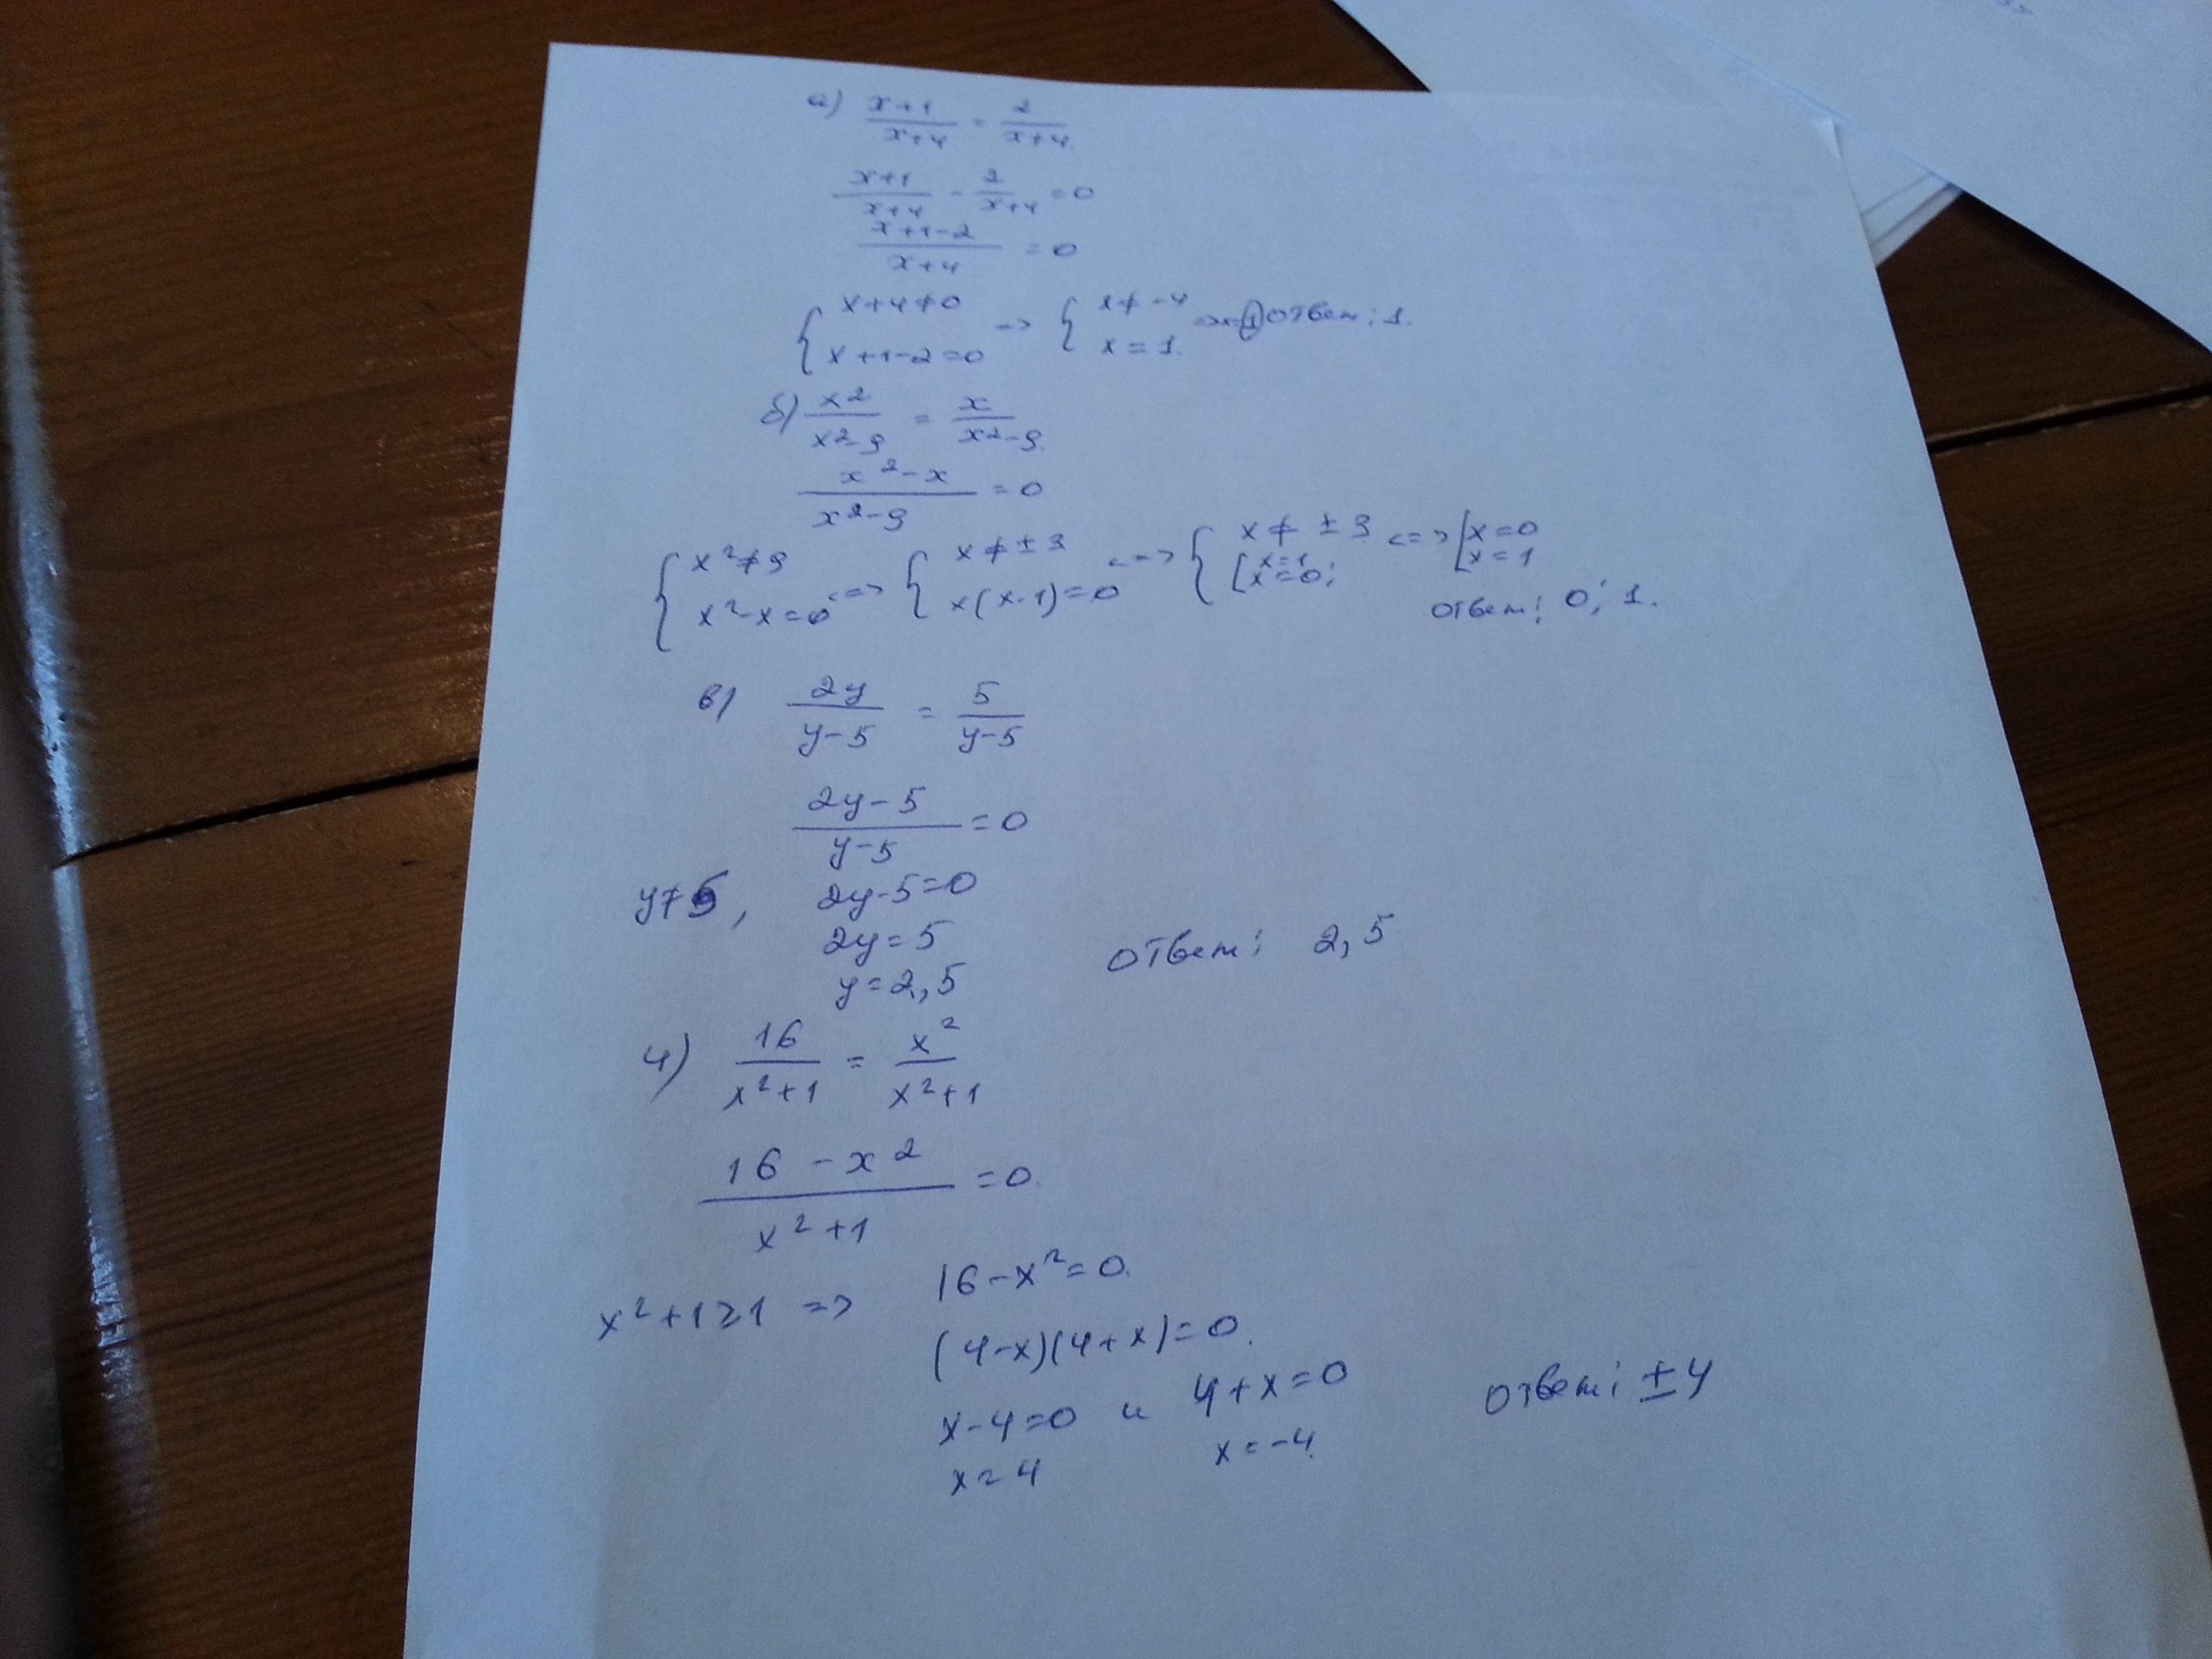 а) (x+1)/(x+4) = 2/(x+4)
(x+1)/(x+4) - 2/(x+4) = 0
(x+1-2)/(x+4) = 0
{ x+4≠0 => { x≠-4
x+1-2=0 x=1. => x=1 ответ: 1.
б) x²/(x²-9) = x/(x²-9)
(x²-x)/(x²-9) = 0
{ x²≠9 <=> { x≠±3 <=> { x≠±3 <=> [ x=0
x²-x=0 x(x-1)=0 [ x=1 x=0; x=1
ответ: 0; 1.
в) 2y/(y-5) = 5/(y-5)
(2y-5)/(y-5) = 0
y≠5, 2y-5=0
2y=5
y=2,5 ответ: 2,5
4) 16/(x²+1) = x²/(x²+1)
(16-x²)/(x²+1) = 0
x²+1≥1 => 16-x²=0.
(4-x)(4+x)=0.
x-4=0 и 4+x=0 ответ: ±4
x=4 x=-4.